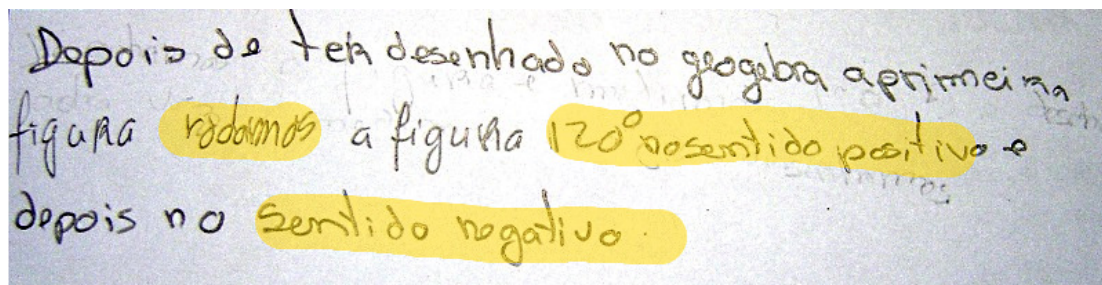 Depois de ter desenhado no geogebra a primeira
figura rodamos a figura 120º no sentido positivo e
depois no sentido negativo.